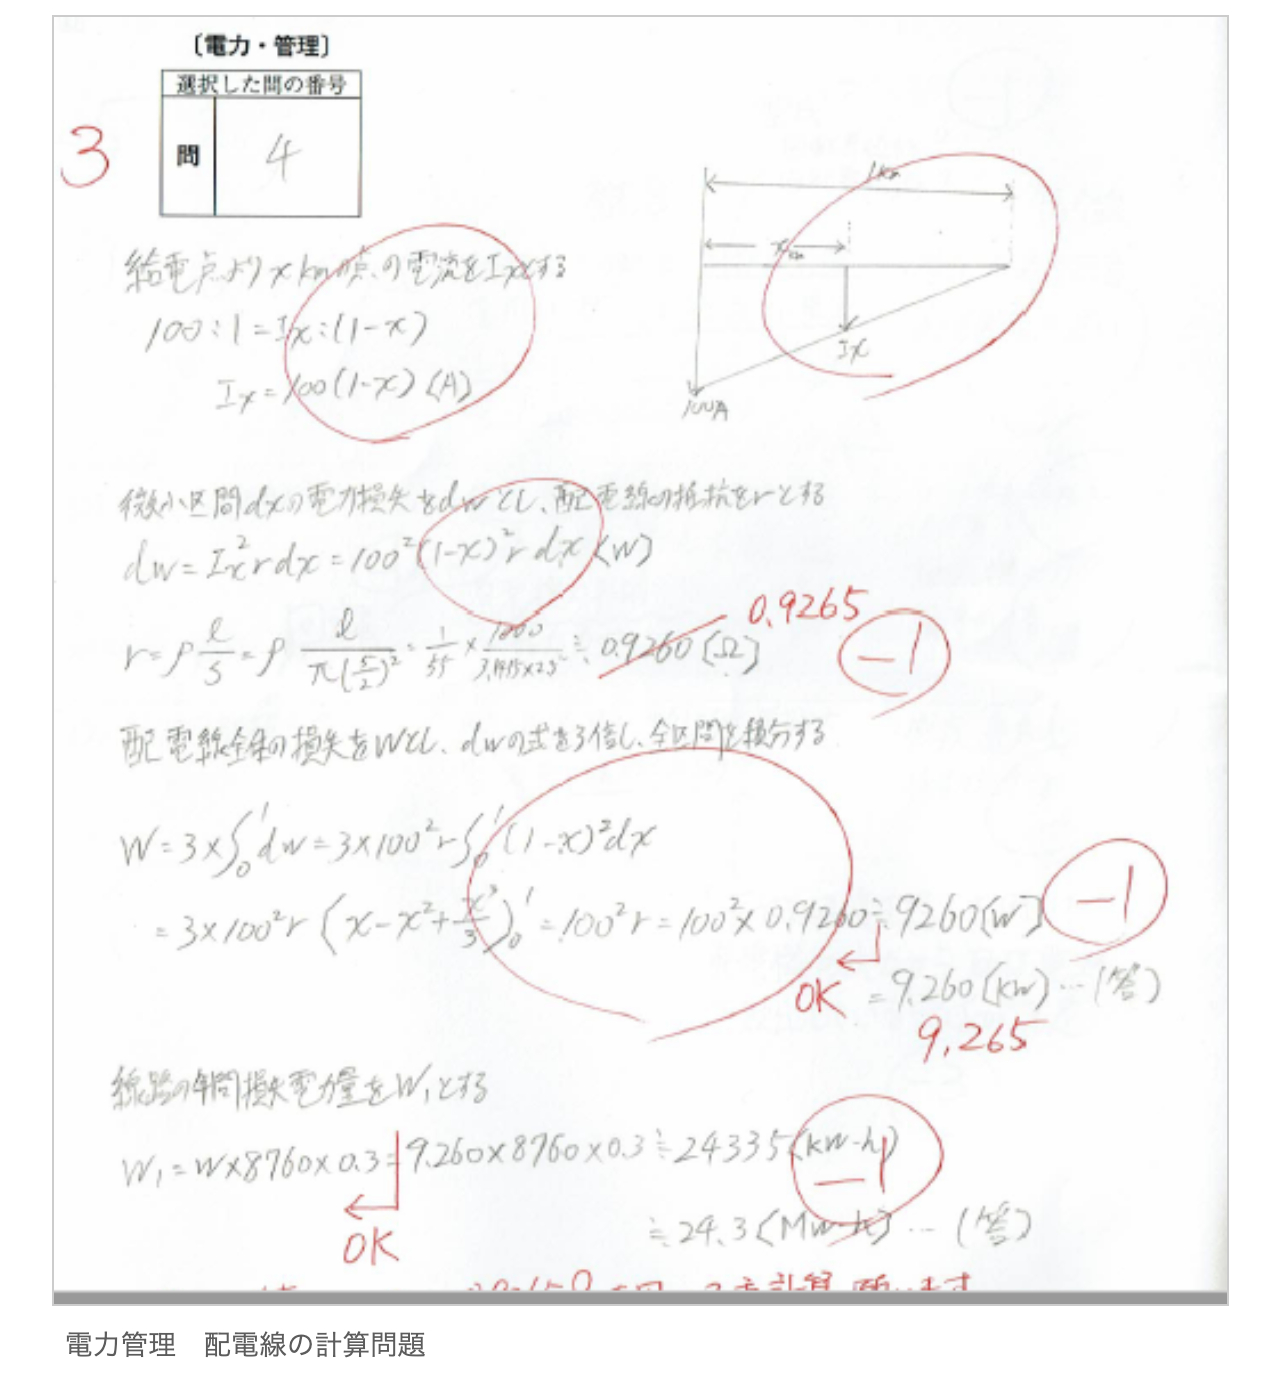 〔電力・管理〕
選択した問の番号
3
問 4
1km
x km
Ix
100A
給電点よりx kmの点の電流をIxとする
100:1=Ix:(1-x)
Ix=100(1-x)〔A〕
微小区間dxの電力損失をdwとし、配電線の抵抗をrとする
dw=Ix²rdx=100²(1-x)²r dx〔W〕
0.9265
r=ρ l/S=ρ l/π(5/2)²=1/55× ≒0.9260〔Ω〕
-1
配電線全体の損失をWとし、dwの式を3倍し、全区間を積分する
W=3×∫₀¹dw=3×100²r∫₀¹(1-x)²dx
=3×100²r(x-x²+x³/3)₀¹=100²r=100²×0.9260≒9260〔W〕
-1
OK
=9.260〔kW〕…(答)
9.265
線路の年間損失電力量をW₁とする
W₁=W×8760×0.3=9.260×8760×0.3≒24335〔kW-h〕
-1
OK
≒24.3〔MW-h〕…(答)
電力管理　配電線の計算問題